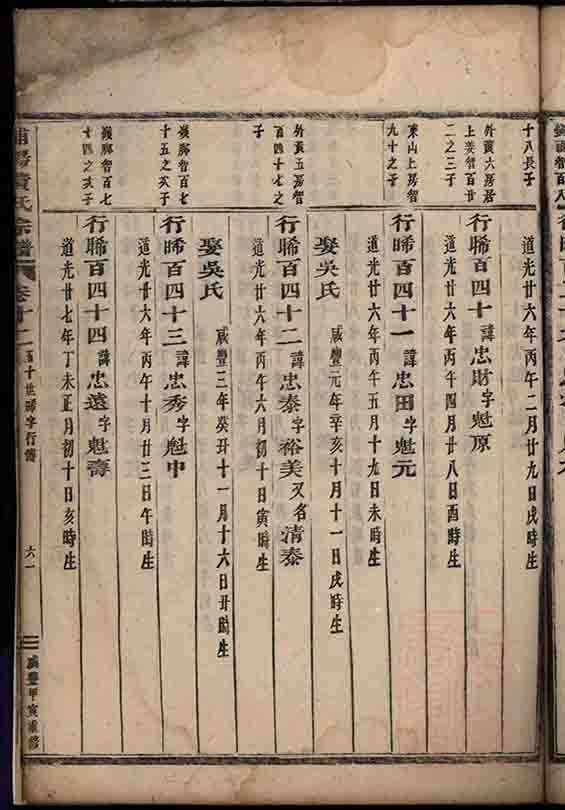 十八長子
道光廿六年丙午二月廿九日戌時生
外黃六房君
上姜智百廿
二之三子
行晞百四十 諱忠財字魁原
道光廿六年丙午四月廿八日酉時生
東山上房智
九十之子
行晞百四十一 諱忠田字魁元
道光廿六年丙午五月十九日未時生
娶吳氏 咸豐元年辛亥十月十一日戌時生
外黃五房智
百四十七之
子
行晞百四十二 諱忠泰字裕美又名清泰
道光廿六年丙午六月初十日寅時生
娶吳氏 咸豐三年癸丑十一月十六日丑時生
嶺腳智百七
十五之次子
行晞百四十三 諱忠秀字魁中
道光廿六年丙午十月廿三日午時生
嶺腳智百七
十四之次子
行晞百四十四 諱忠遠字魁壽
道光廿七年丁未正月初十日亥時生
黃氏宗譜 卷十二 百十世晞字行傳 六一 咸豐甲寅重修